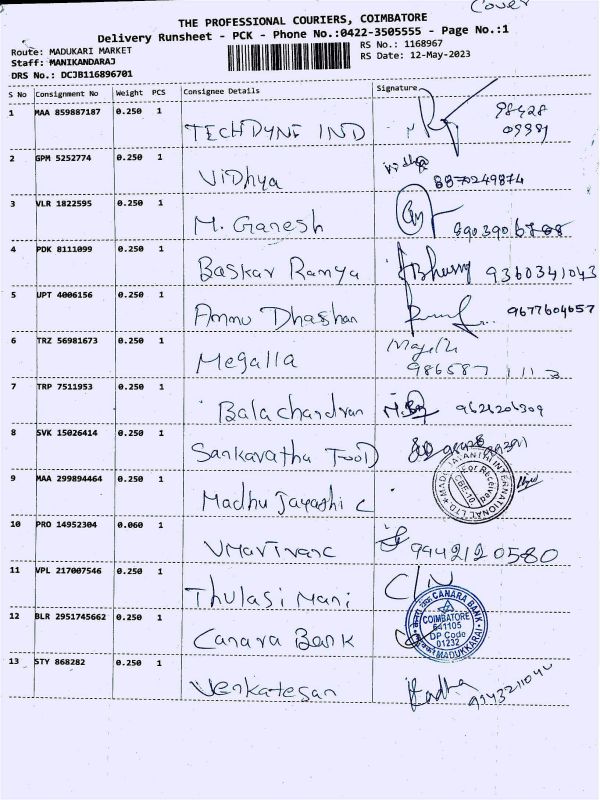 Cover
THE PROFESSIONAL COURIERS, COIMBATORE
Delivery Runsheet - PCK - Phone No.:0422-3505555 - Page No.:1
Route: MADUKARI MARKET
Staff: MANIKANDARAJ
DRS No.: DCJB116896701
RS No.: 1168967
RS Date: 12-May-2023
S No Consignment No Weight PCS Consignee Details Signature
1 MAA 859887187 0.250 1 TECHDYNE IND 98428
2 GPM 5252774 0.250 1 Vidhya Vidhya 8870249874
3 VLR 1822595 0.250 1 M. Ganesh
4 PDK 8111099 0.250 1 Baskar Ramya 9360341043
5 UPT 4006156 0.250 1 Ammu Dhashan 9677604657
6 TRZ 56981673 0.250 1 Megalla
7 TRP 7511953 0.250 1 Balachandran 9621206309
8 SVK 15026414 0.250 1 Sankaratha Food
9 MAA 299894464 0.250 1 Madhu Jayashi C
10 PRO 14952304 0.060 1 9942120580
11 VPL 217007546 0.250 1 Thulasi Mani C/N
12 BLR 2951745662 0.250 1 Canara Bank
CANARA BANK
COIMBATORE
641105
DP Code
01232
MADUKKARAI
13 STY 868282 0.250 1 Venkatesan Radha